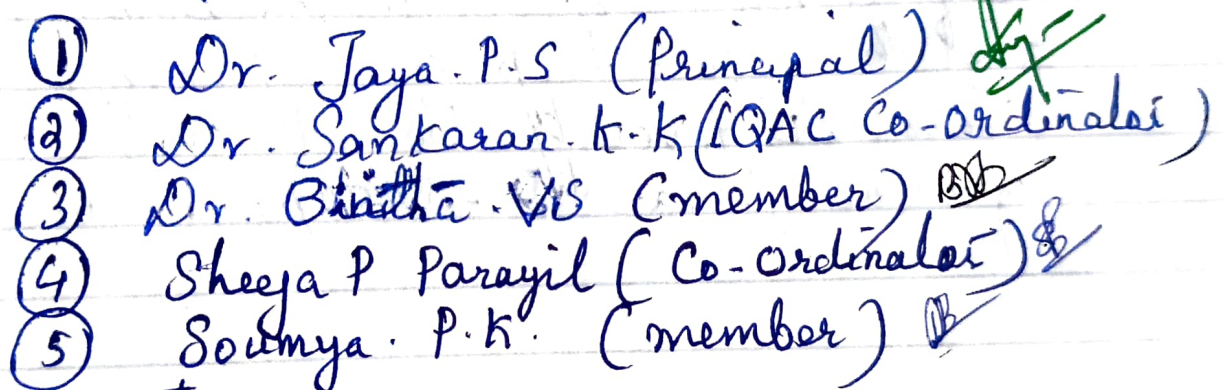 ① Dr. Jaya. P.S (Principal)
② Dr. Sankaran. K.K (IQAC Co-ordinator)
③ Dr. Binitha. VS (member)
④ Sheeja P Parayil (Co-ordinator)
⑤ Soumya. P.K. (member)